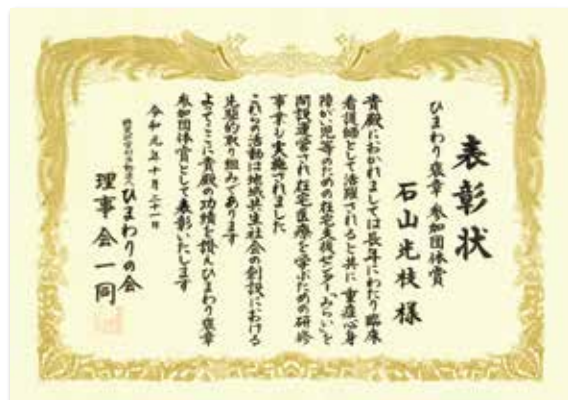 表彰状
ひまわり褒章 参加団体賞
石山光枝 様
貴殿におかれましては長年にわたり臨床
看護師として活躍されると共に重症心身
障がい児等のための在宅支援センター「みらい」を
開設運営され在宅医療を学ぶための研修
事業も実施されました
これらの活動は地域共生社会の創設における
先駆的取り組みであります
よってここに貴殿の功績を讃えひまわり褒章
参加団体賞として表彰いたします
令和元年十月二十一日
特定非営利活動法人 ひまわりの会
理事会一同